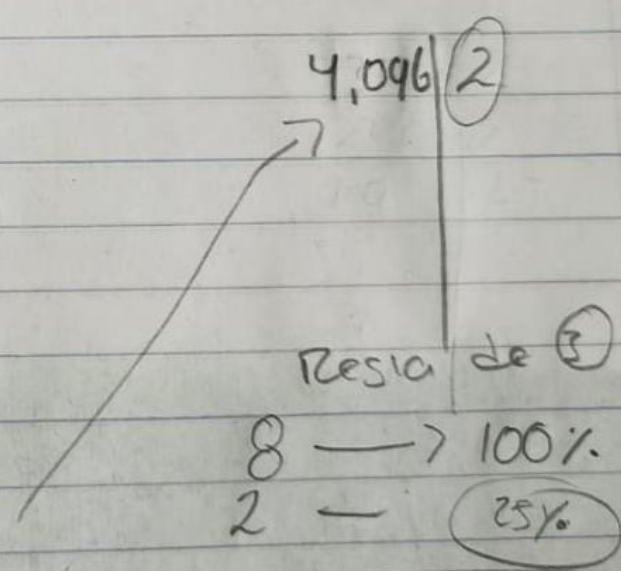 4,096 2
Resla de 3
8 —> 100%
2 — 25%